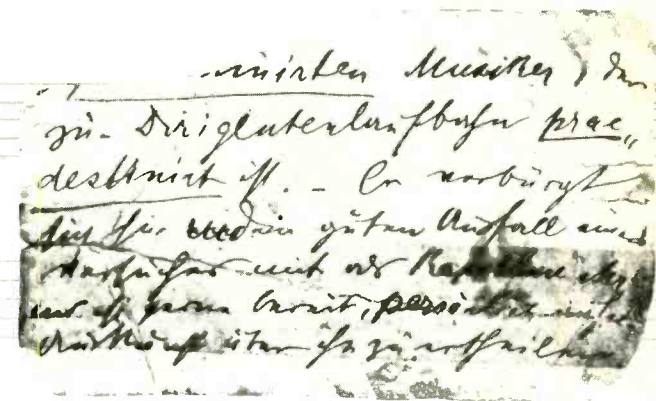 nirten Musiker, der
zur Dirigentenlaufbahn prae„
destinirt ist. – Er verbürgt
sich für den guten Ausfall eines
Versuches mit
und ist gerne bereit, persönlich
Auskunft über ihn zu ertheilen